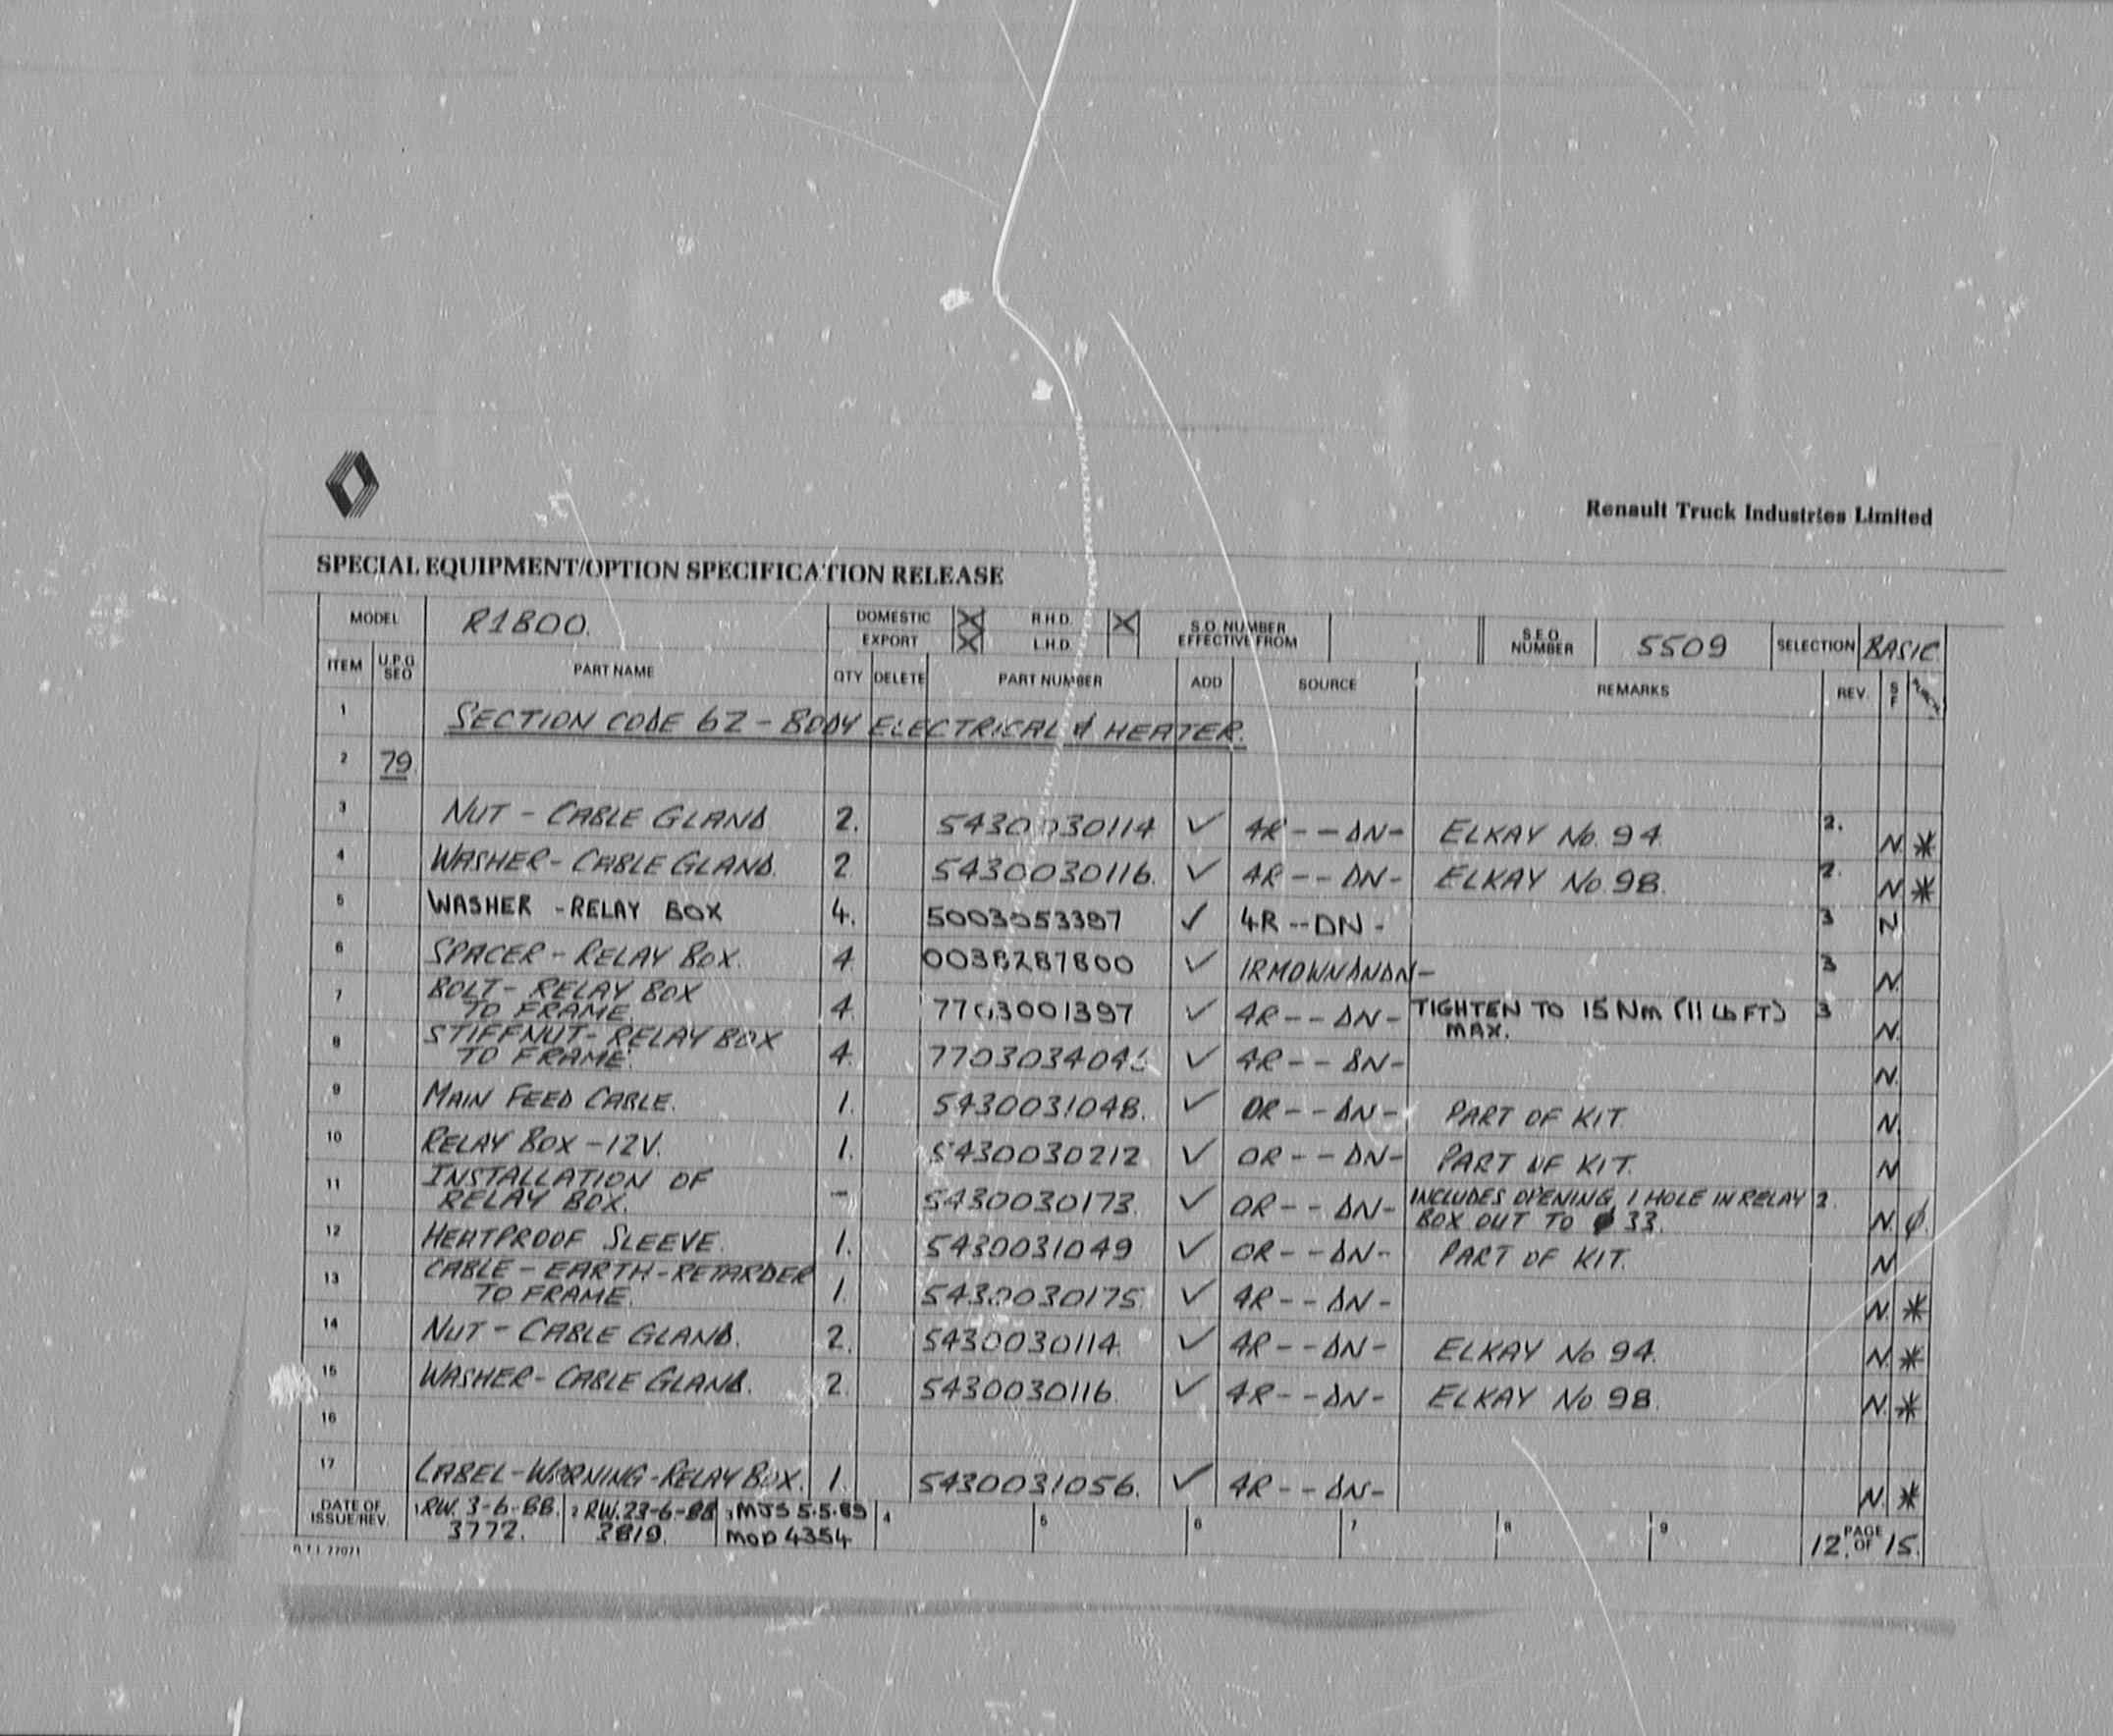 Renault Truck Industries Limited
SPECIAL EQUIPMENT/OPTION SPECIFICATION RELEASE
MODEL R1800. DOMESTIC X R.H.D. X S.O. NUMBER EFFECTIVE FROM S.E.O. NUMBER 5509 SELECTION BASIC
EXPORT X L.H.D.
ITEM U.P.G. SEQ PART NAME QTY DELETE PART NUMBER ADD SOURCE REMARKS REV. S F
1 SECTION CODE 62 - BODY ELECTRICAL & HEATER.
2 79
3 NUT - CABLE GLAND 2. 5430030114 ✓ 4R - - DN - ELKAY No. 94. 2. N *
4 WASHER - CABLE GLAND. 2 5430030116. ✓ 4R - - DN - ELKAY No 98. 2. N *
5 WASHER - RELAY BOX 4. 5003053397 ✓ 4R -- DN - 3 N
6 SPACER - RELAY BOX. 4 ✓ 3 N.
7 BOLT - RELAY BOX TO FRAME. 4. 7703001397 ✓ 4R - - DN - TIGHTEN TO 15 Nm (11 Lb FT) MAX. 3 N.
8 STIFFNUT - RELAY BOX TO FRAME. 4. ✓ 4R - - DN - N.
9 MAIN FEED CABLE. 1. 5430031048. ✓ OR - - DN - PART OF KIT. N.
10 RELAY BOX - 12V. 1. 5430030212 ✓ OR - - DN - PART OF KIT. N
11 INSTALLATION OF RELAY BOX. - 5430030173. ✓ OR - - DN - INCLUDES OPENING 1 HOLE IN RELAY BOX OUT TO ø 33. 2. N ø.
12 HEATPROOF SLEEVE. 1. 5430031049 ✓ OR - - DN - PART OF KIT. N
13 CABLE - EARTH - RETARDER TO FRAME. 1. 5430030175. ✓ 4R - - DN - N. *
14 NUT - CABLE GLAND. 2. 5430030114. ✓ 4R - - DN - ELKAY No 94. N. *
15 WASHER - CABLE GLAND. 2. 5430030116. ✓ 4R - - DN - ELKAY No 98. N. *
16
17 LABEL - WARNING - RELAY BOX. 1. 5430031056. ✓ 4R - - DN - N. *
DATE OF ISSUE/REV. 1 RW. 3-6-88. 3772. 2 RW. 23-6-88 3819. 3 MJS 5.5.89 MOD 4354 4 5 6 7 8 9 12. PAGE OF 15.
R.T.I. 77071